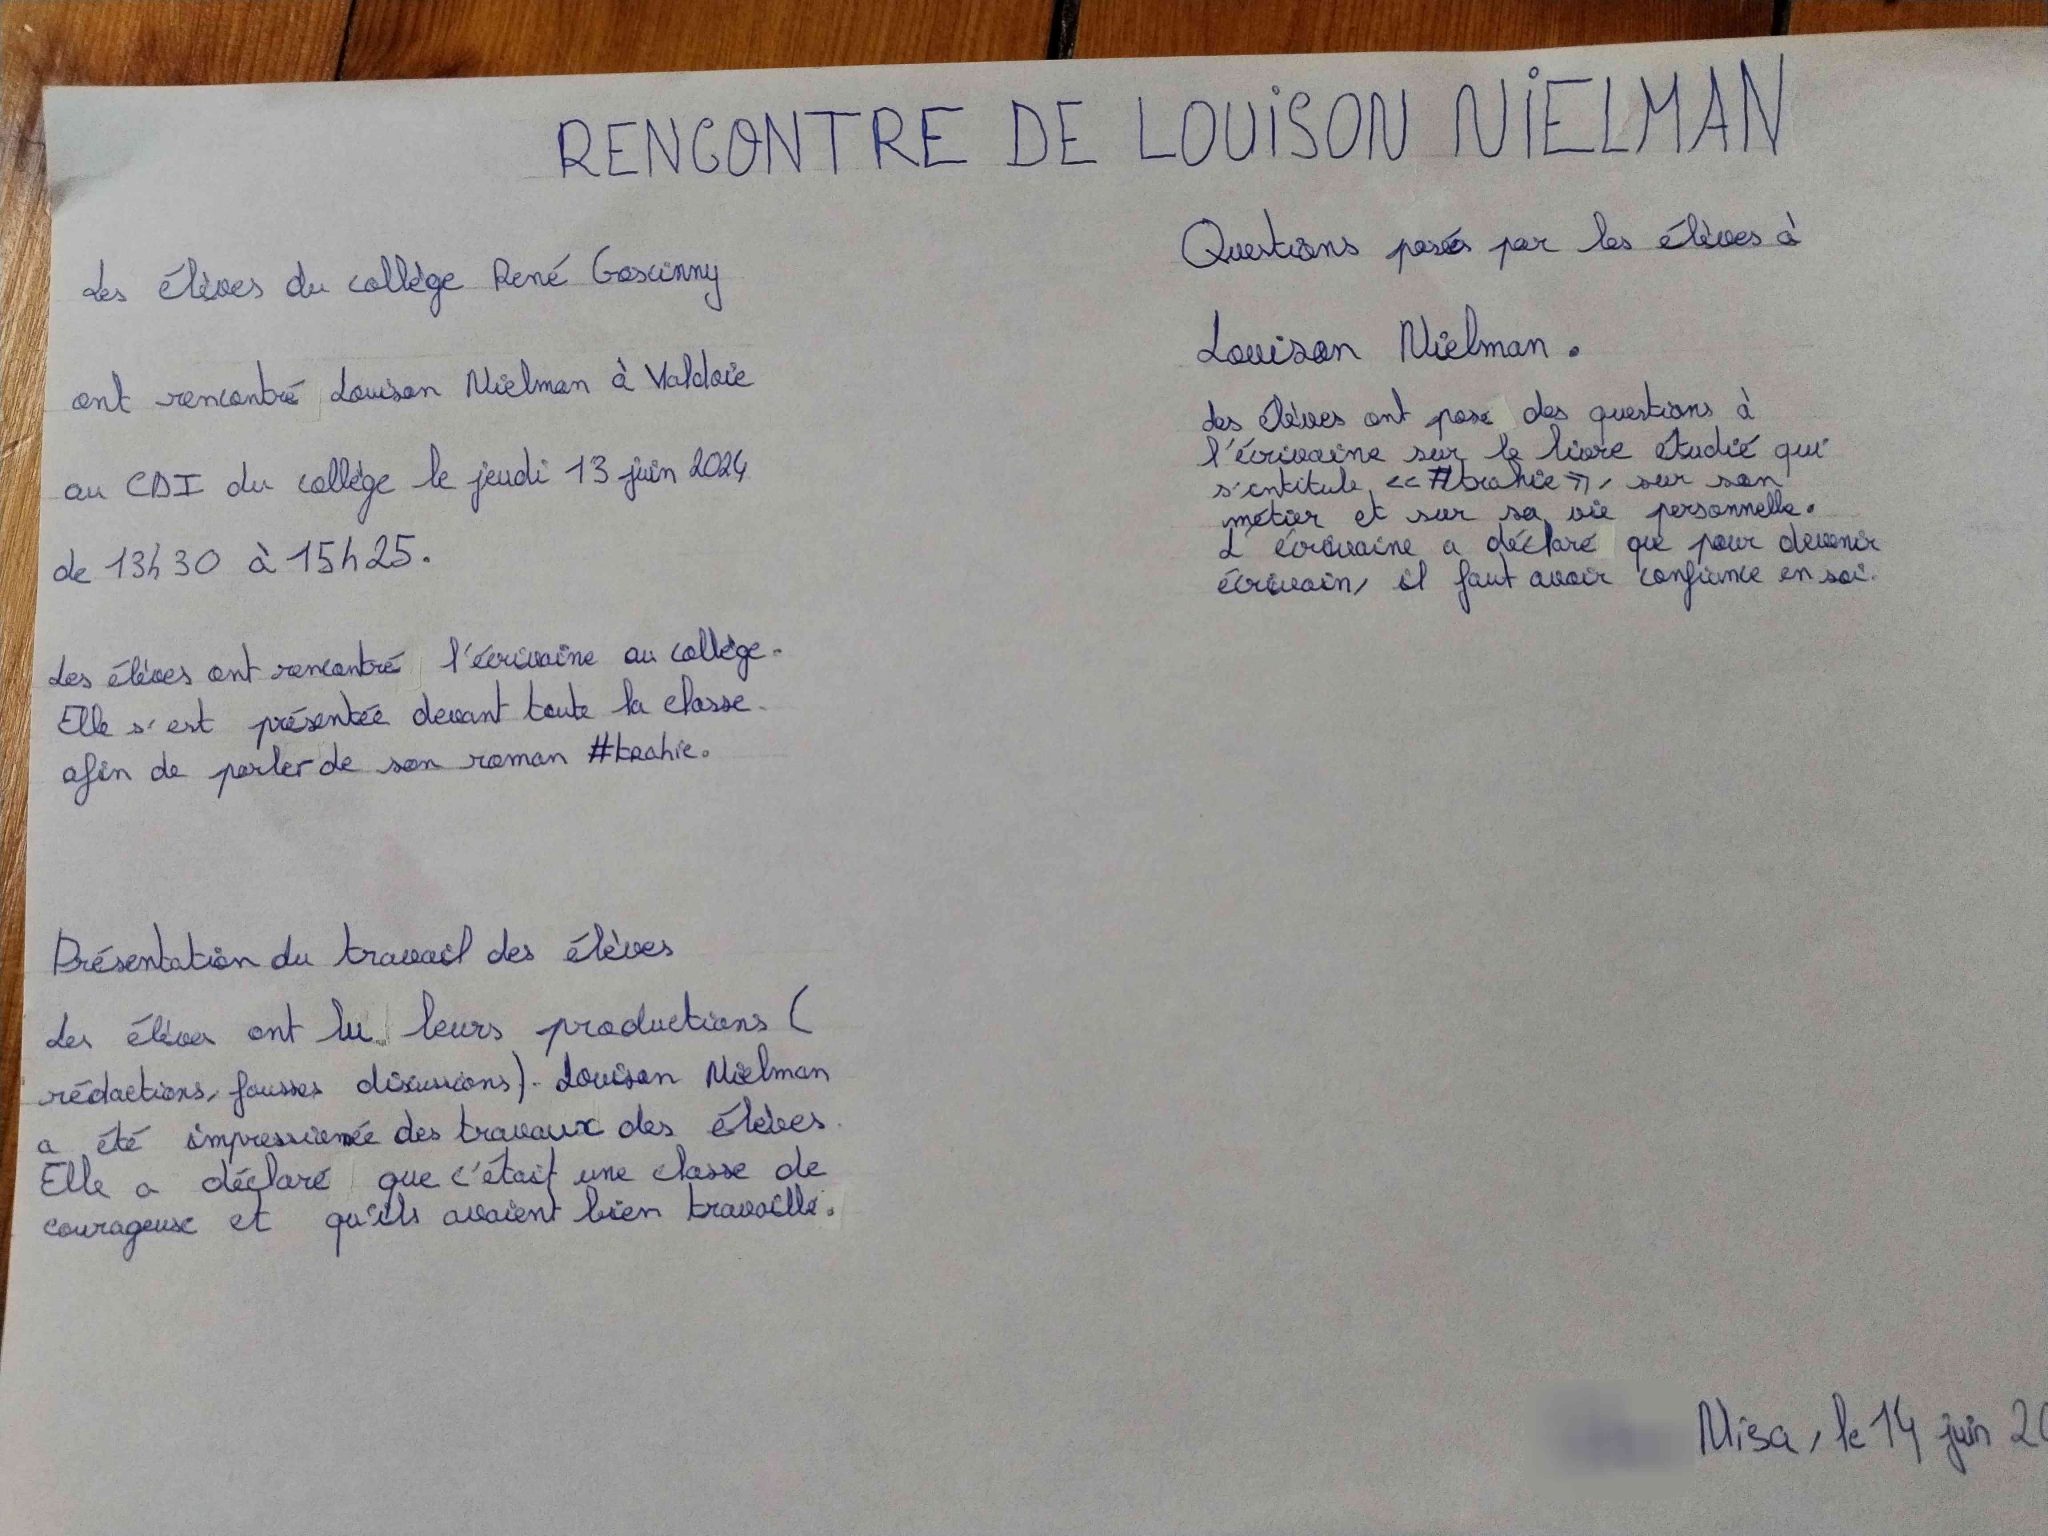 RENCONTRE DE LOUiSON NiELMAN
Les élèves du collège René Goscinny
ont rencontré Louison Nielman à Valdoie
au CDI du collège le jeudi 13 juin 2024
de 13h30 à 15h25.
Les élèves ont rencontré l'écrivaine au collège.
Elle s'est présentée devant toute la classe
afin de parler de son roman #trahie.
Présentation du travail des élèves
Les élèves ont lu leurs productions (
rédactions, fausses discussions). Louison Nielman
a été impressionée des travaux des élèves.
Elle a déclaré que c'était une classe de
courageux et qu'ils avaient bien travaillé.
Questions posés par les élèves à
Louison Nielman.
Les élèves ont posé des questions à
l'écrivaine sur le livre étudié qui
s'intitule << #trahie >>, sur son
métier et sur sa vie personnelle.
L'écrivaine a déclaré que pour devenir
écrivain, il faut avoir confiance en soi.
Misa, le 14 juin 20